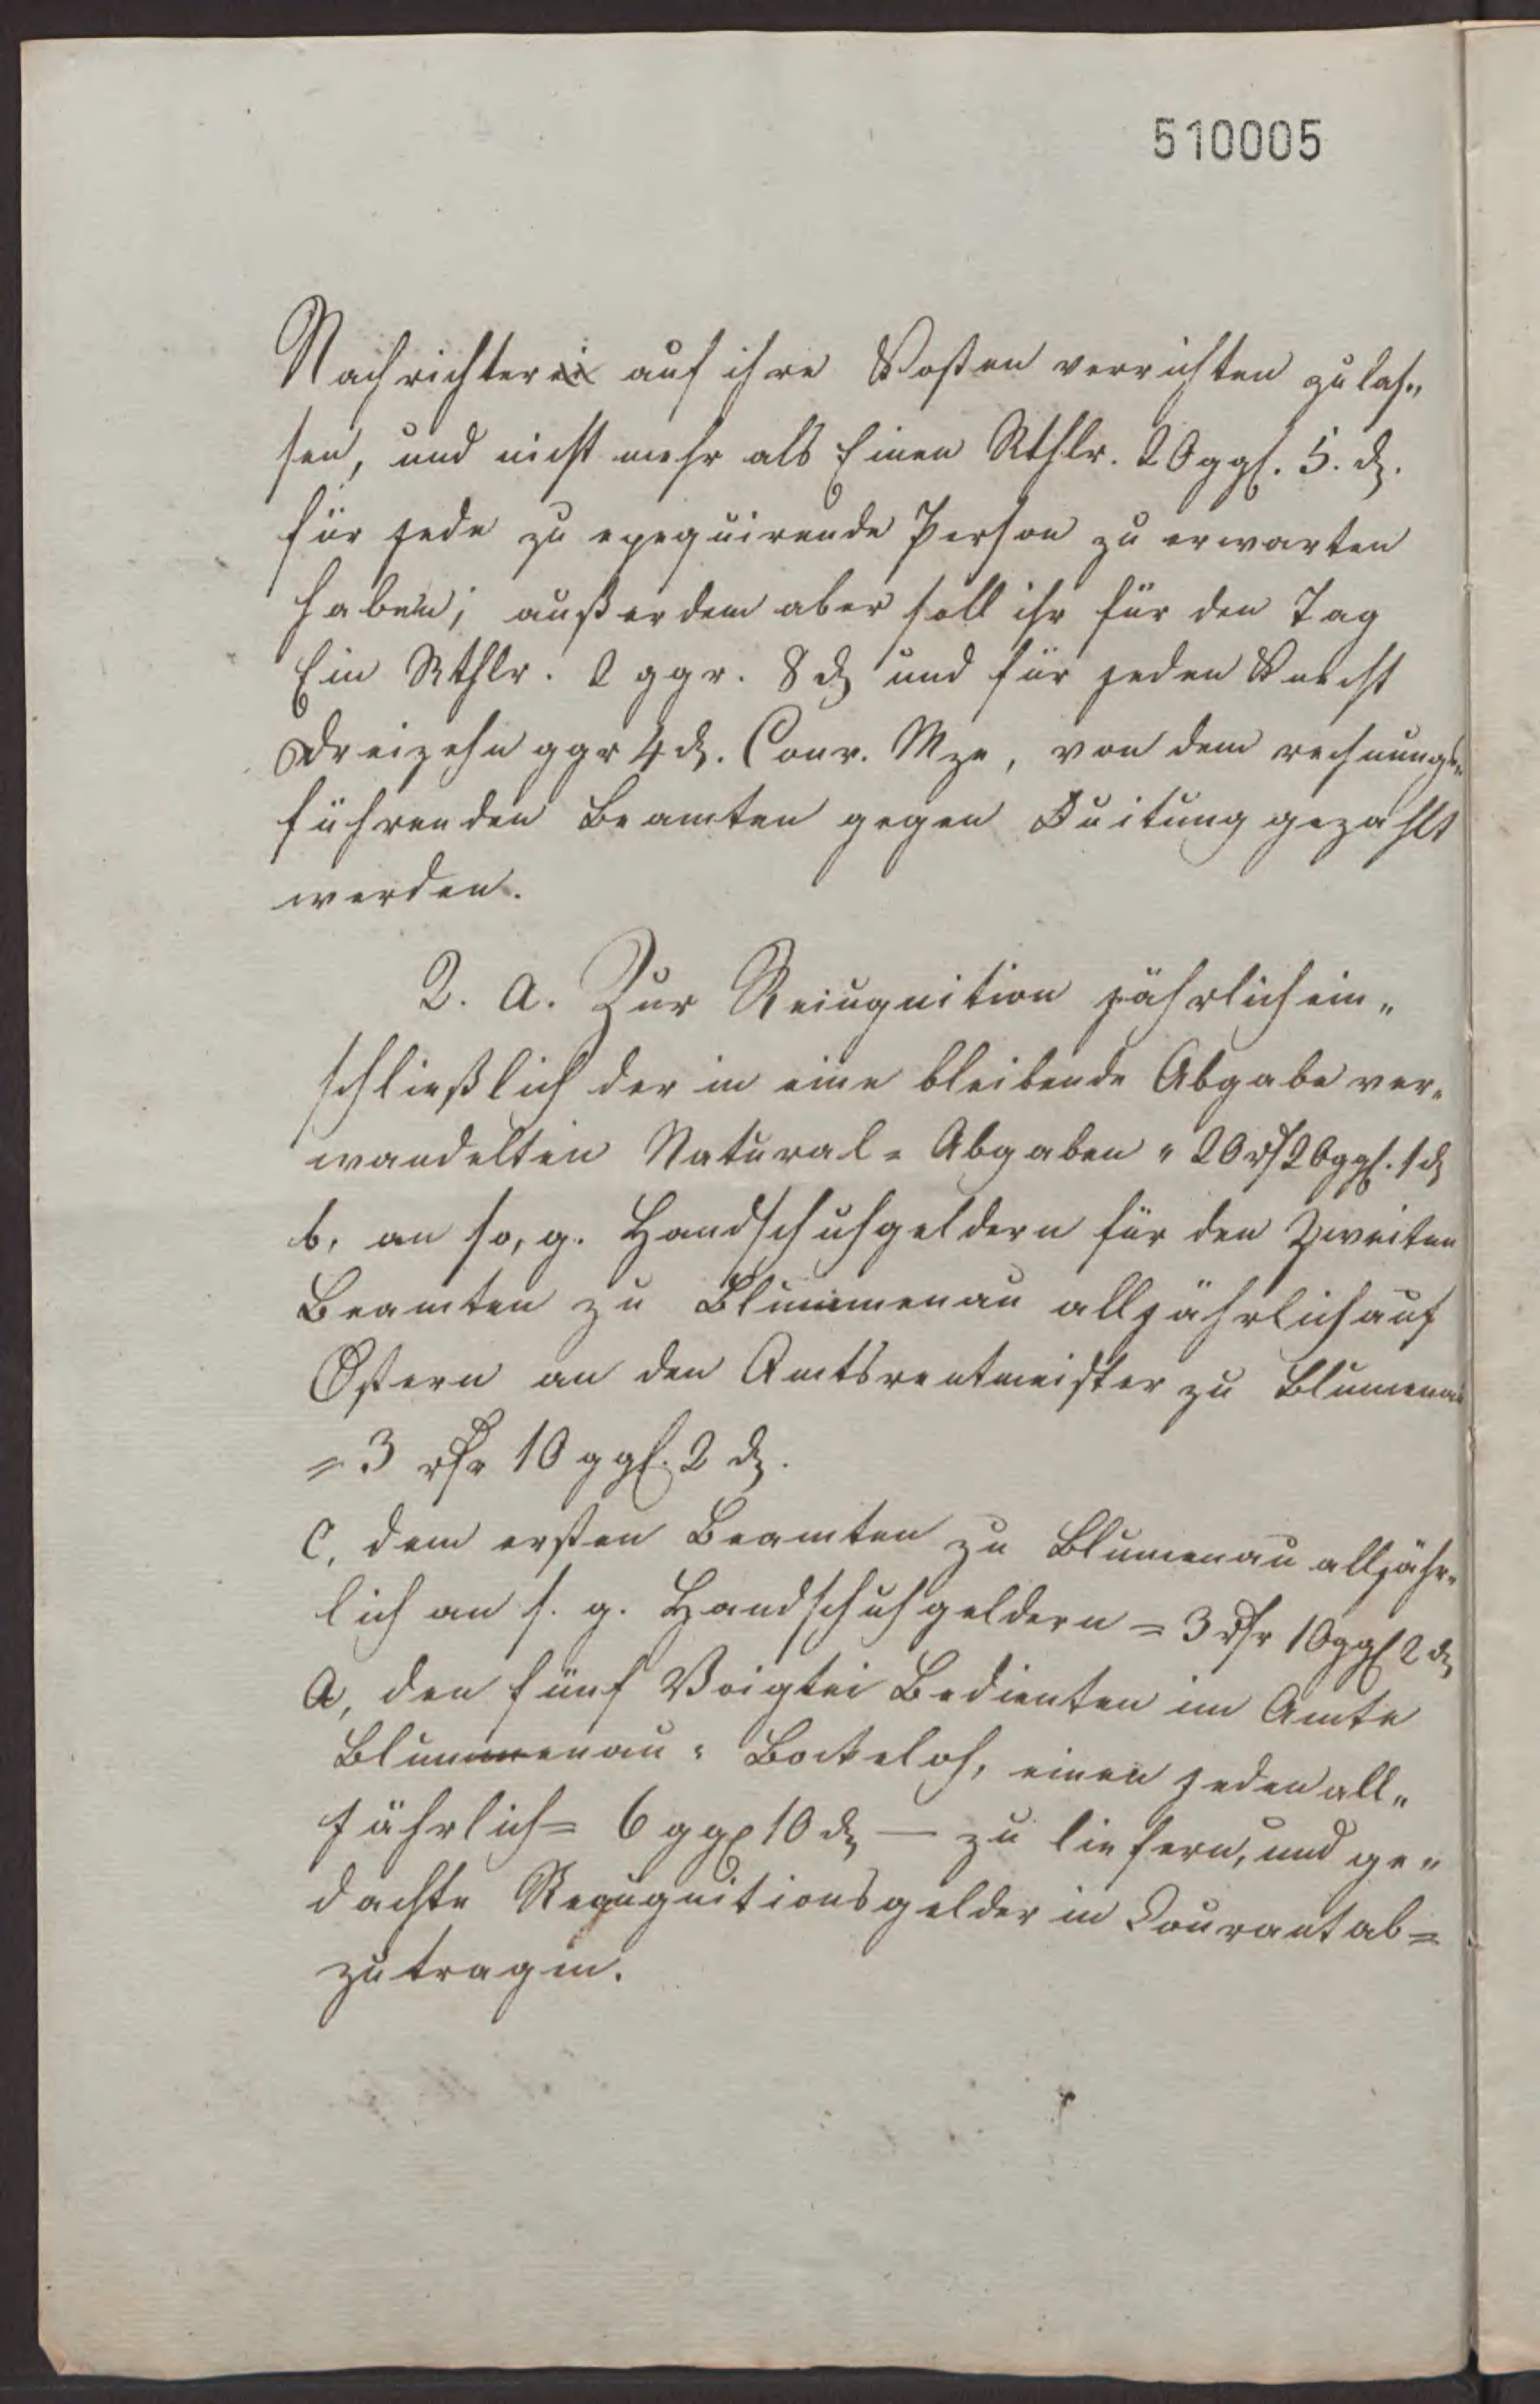 510005
Nachrichter auf ihre Kosten verrichten zu las„
sen, und nicht mehr als Einen Rthlr. 20 ggl. 5. ₰.
für jede zu exequirende Person zu erwarten
haben; außerdem aber soll ihr für den Tag
Ein Rthlr. 2 ggr. 8 ₰ und für jeden Knecht
Dreizehn ggr 4 ₰. Conv. Mze, von dem rechnungs„
führenden Beamten gegen Quitung gezahlt
werden.
2. a. Zur Reiugnition jährlich ein„
schließlich der in eine bleibende Abgabe ver„
wandelten Natural = Abgaben „ 20 rß 20 ggl. 1 ₰
b, an so, g. Handschuhgeldern für den Zweiten
Beamten zu Blummenau alljährlich auf
Ostern an den Amtsrentmeister zu Blumenau
= 3 rthr 10 ggl. 2 ₰.
C, dem ersten Beamten zu Blumenau alljähr„
lich an s. g. Handschuhgeldern = 3 rthr 10 ggl 2 ₰
a, den fünf Voigtei Bedienten im Amte
Blummenau = Bokeloh, einen jeden all„
jährlich = 6 ggl 10 ₰ — zu liefern, und ge„
dachte Recugnitionsgelder in Courant ab=
zutragen.